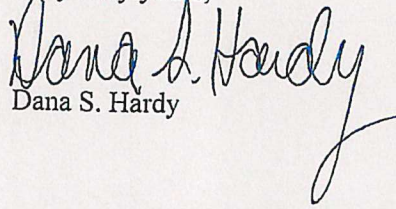 Dana S. Hardy
Dana S. Hardy